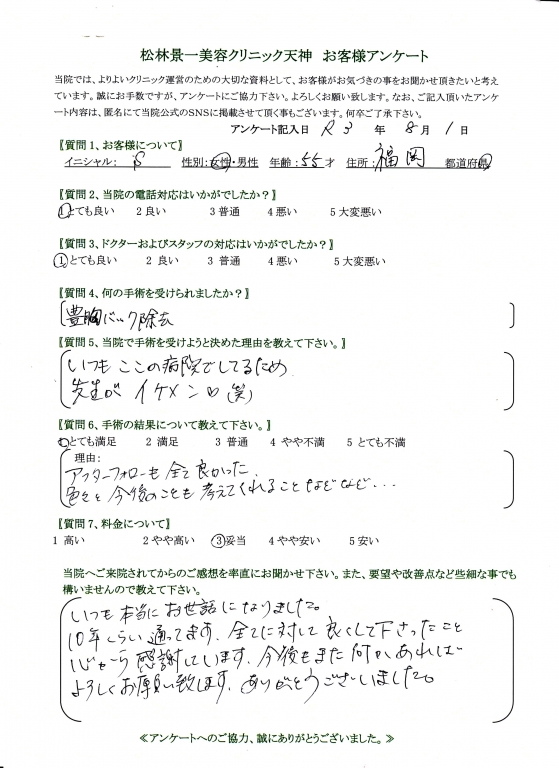 松林景一美容クリニック天神 お客様アンケート
当院では、よりよいクリニック運営のための大切な資料として、お客様がお気づきの事をお聞かせ頂きたいと考え
ています。誠にお手数ですが、アンケートにご協力下さい。よろしくお願い致します。なお、ご記入頂いたアンケ
ート内容は、匿名にて当院公式のSNSに掲載させて頂く事もございます。何卒ご了承下さい。
アンケート記入日 R3 年 8 月 1 日
〖質問1、お客様について〗
イニシャル: S 性別:女性・男性 年齢:55才 住所:福岡 都道府県
〖質問2、当院の電話対応はいかがでしたか?〗
1とても良い 2良い 3普通 4悪い 5大変悪い
〖質問3、ドクターおよびスタッフの対応はいかがでしたか?〗
1とても良い 2 良い 3 普通 4悪い 5大変悪い
〖質問4、何の手術を受けられましたか?〗
豊胸バック除去
〖質問5、当院で手術を受けようと決めた理由を教えて下さい。〗
いつもここの病院でしてるため
先生がイケメン♡(笑)
〖質問6、手術の結果について教えて下さい。〗
1とても満足 2 満足 3 普通 4 やや不満 5 とても不満
理由:
アフターフォローも全て良かった、
色々と今後のことも考えてくれることなどなど...
〖質問7、料金について〗
1 高い 2やや高い 3妥当 4やや安い 5安い
当院へご来院されてからのご感想を率直にお聞かせ下さい。また、要望や改善点など些細な事でも
構いませんので教えて下さい。
いつも本当にお世話になりました。
10年くらい通ってます。全てに対して良くして下さったこと
心から感謝しています。今後もまた何かあれば
よろしくお願い致します。ありがとうございました。
≪アンケートへのご協力、誠にありがとうございました。≫